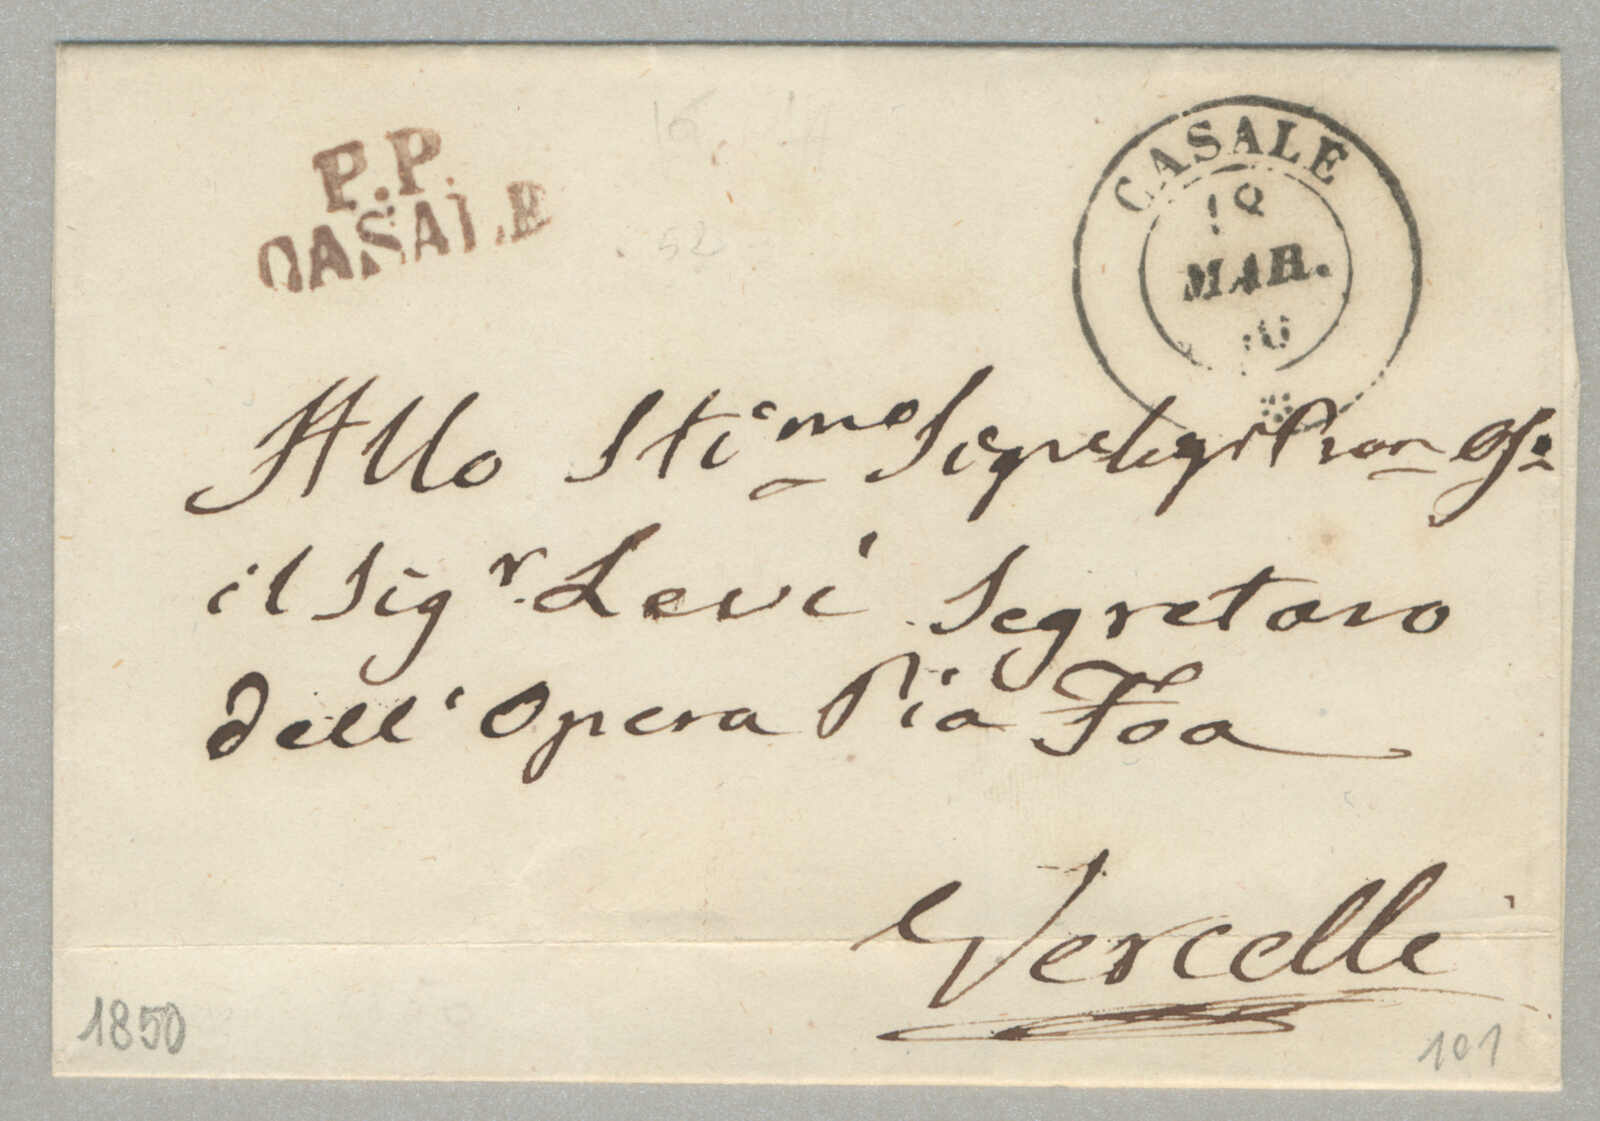 P.P.
CASALE
CASALE
MAR.
Allo Stimo Sig
il Sigr. Levi Segretaro
dell'Opera Pia Foa
Vercelli
1850
101